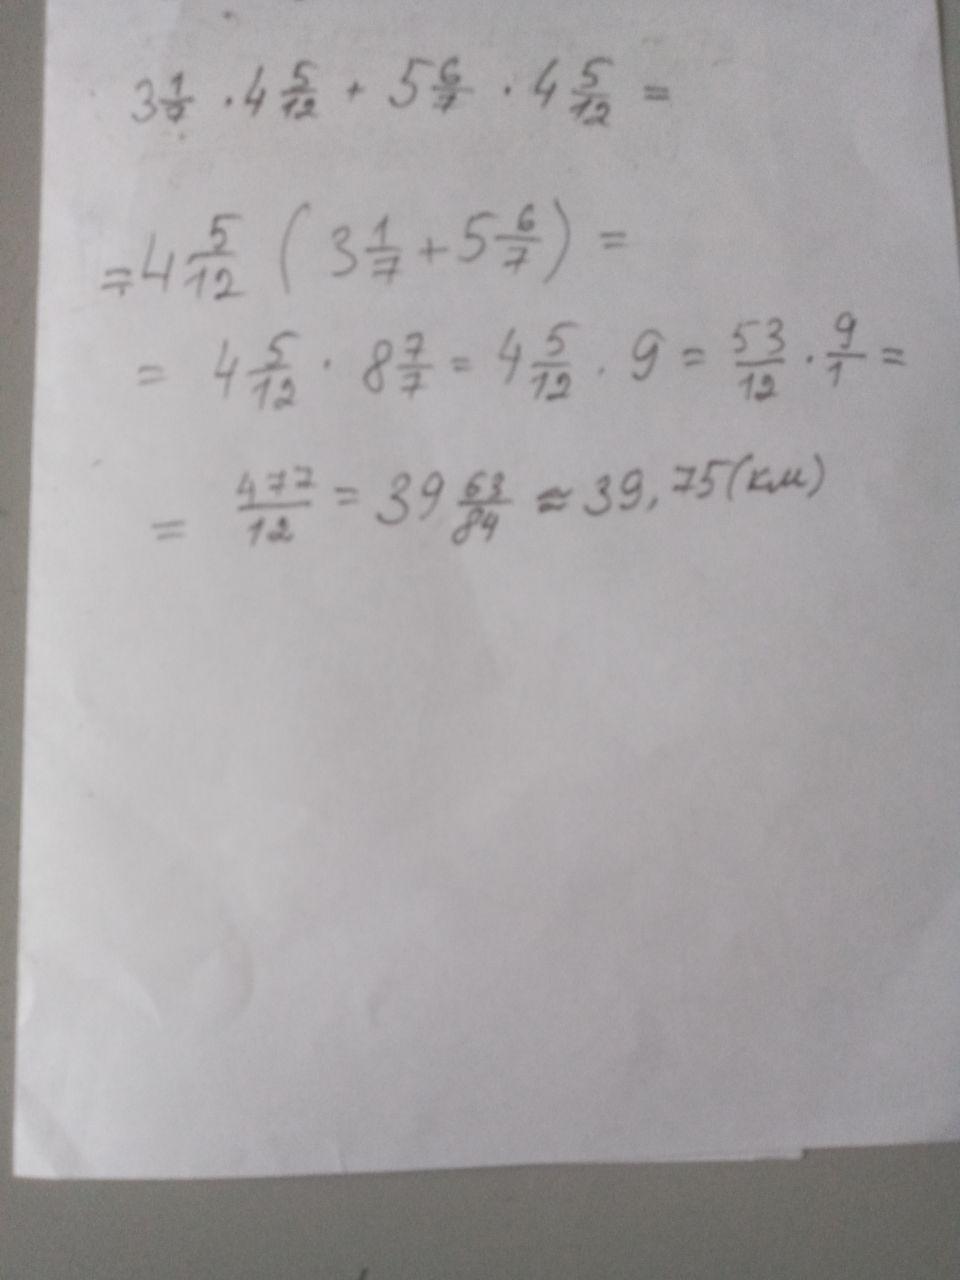 3 1/7 · 4 5/12 + 5 6/7 · 4 5/12 =
= 4 5/12 ( 3 1/7 + 5 6/7 ) =
= 4 5/12 · 8 7/7 = 4 5/12 · 9 = 53/12 · 9/1 =
= 477/12 = 39 63/84 ≈ 39,75 (км)